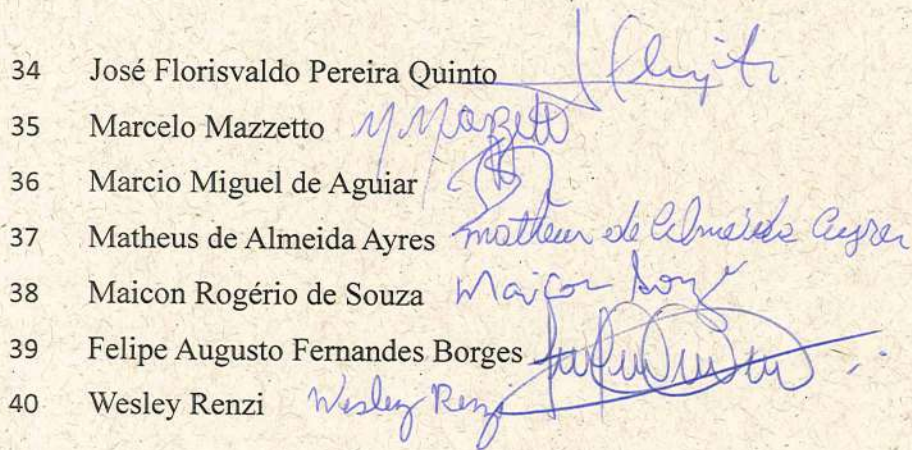 34 José Florisvaldo Pereira Quinto
35 Marcelo Mazzetto M Mazzetto
36 Marcio Miguel de Aguiar
37 Matheus de Almeida Ayres Matheus de Almeida Ayres
38 Maicon Rogério de Souza Maicon Souza
39 Felipe Augusto Fernandes Borges
40 Wesley Renzi Wesley Renzi